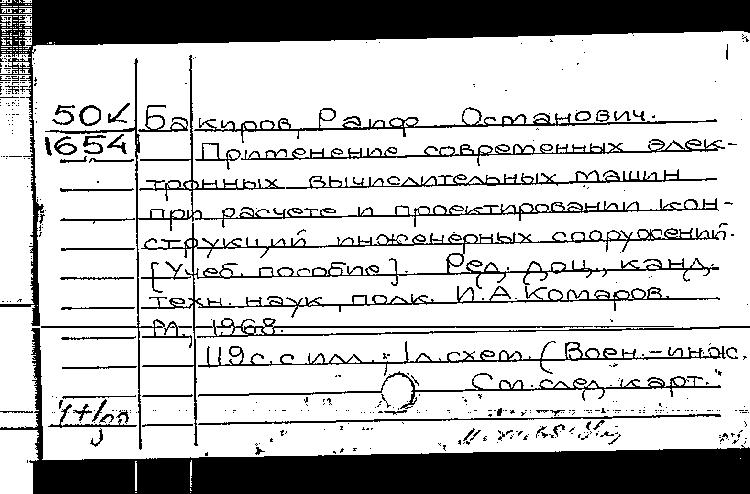 50✓ Бакиров, Раиф Османович.
1654 Применение современных элек-
тронных вычислительных машин
при расчете и проектировании кон-
струкций инженерных сооружений.
[Учеб. пособие]. Ред. доц., канд.
техн. наук, полк. И.А. Комаров.
М., 1968.
119 с. с илл.; 1 л. схем. (Воен.-инж.
См. след. карт.